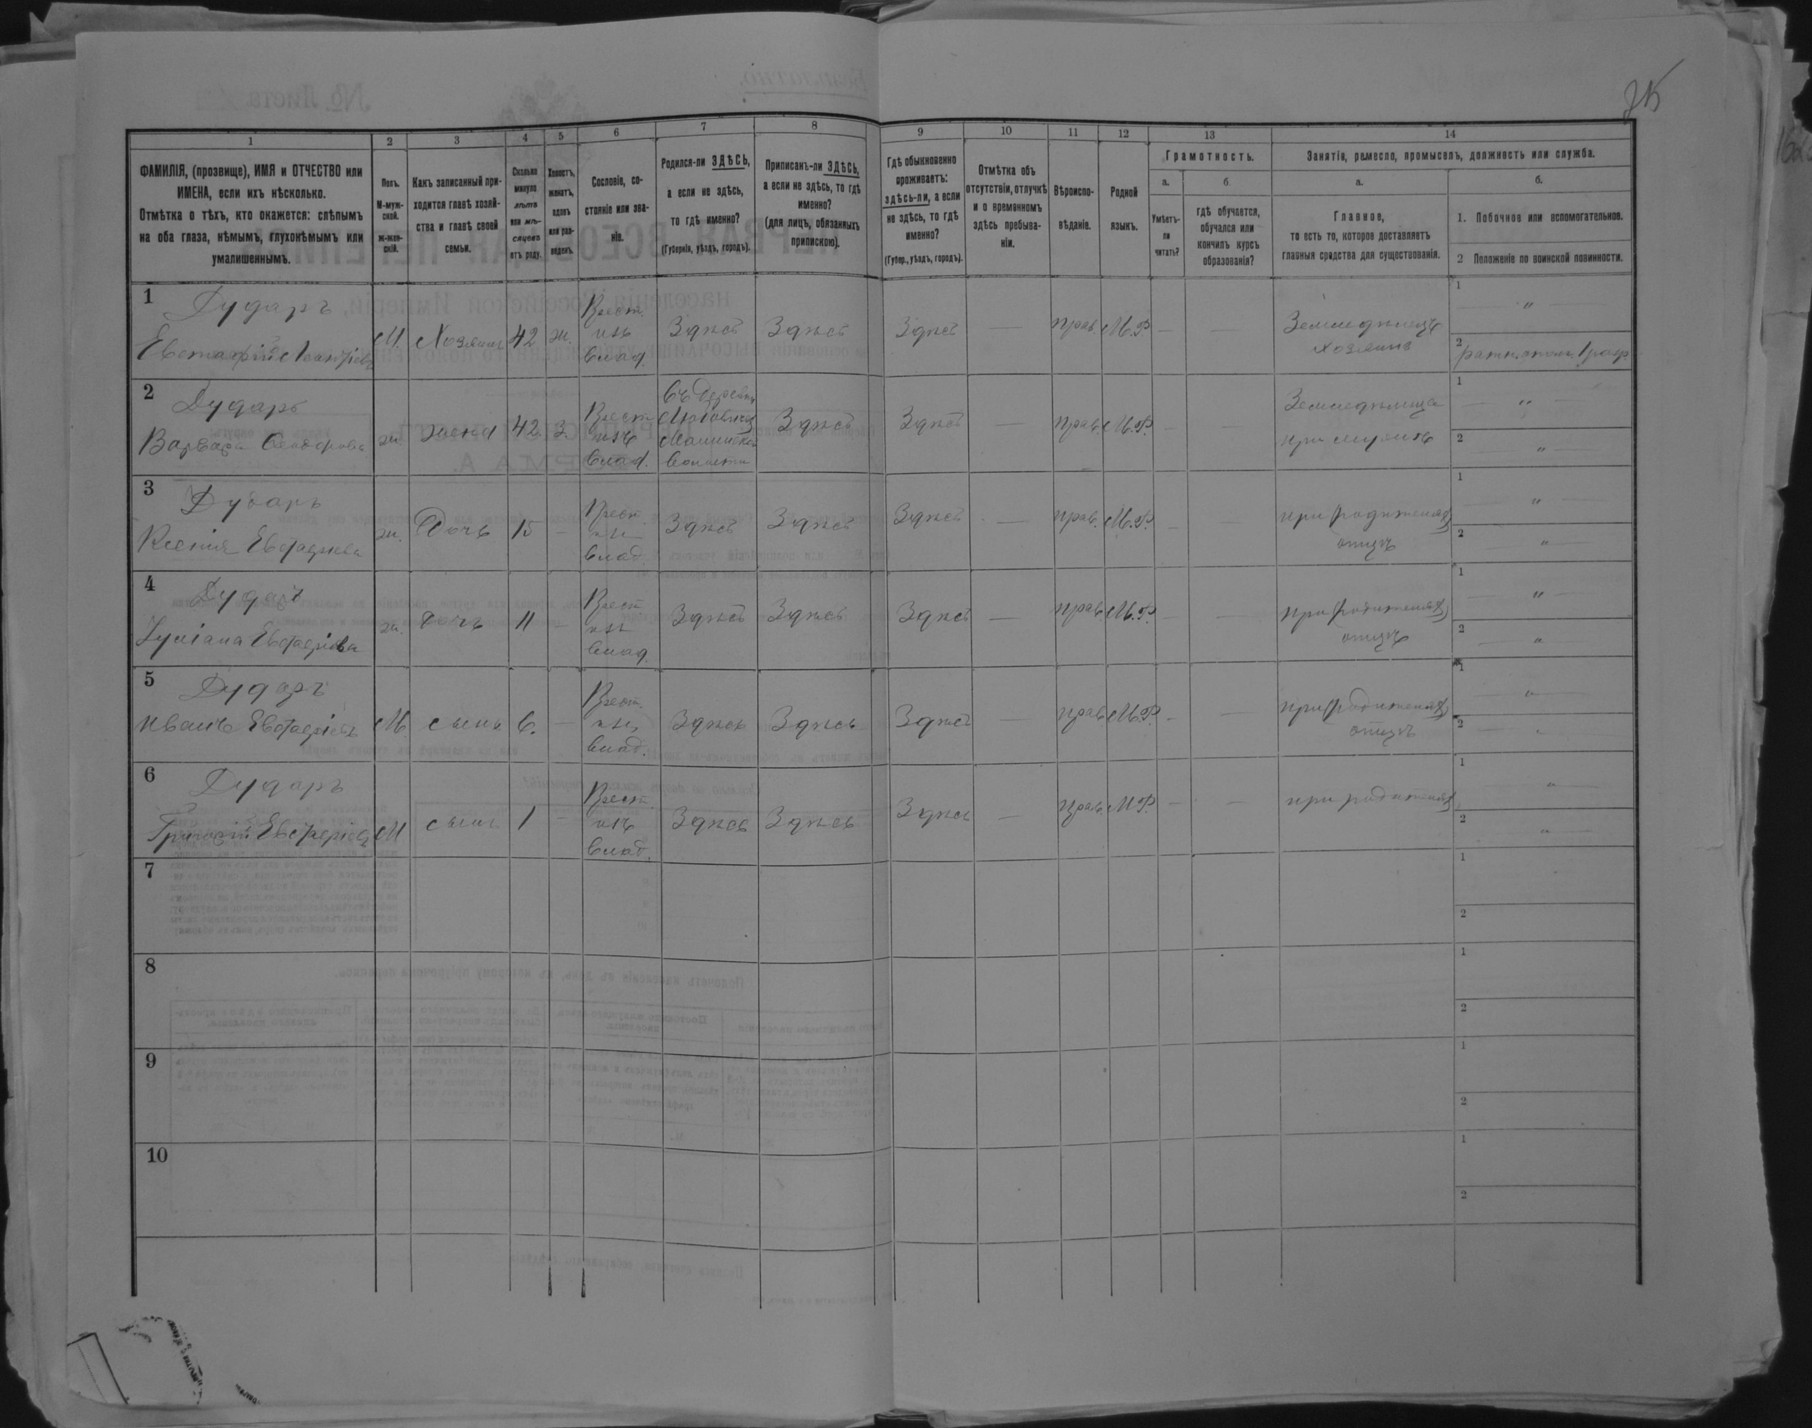 75
1 2 3 4 5 6 7 8 9 10 11 12 13 14
ФАМИЛІЯ, (прозвище), ИМЯ и ОТЧЕСТВО или
ИМЕНА, если ихъ нѣсколько.
Отмѣтка о тѣхъ, кто окажется: слѣпымъ
на оба глаза, нѣмымъ, глухонѣмымъ или
умалишеннымъ.
Полъ.
М-муж-
ской.
Ж-жен-
скій.
Какъ записанный при-
ходится главѣ хозяй-
ства и главѣ своей
семьи.
Сколько
минуло
лѣтъ
или мѣ-
сяцевъ
отъ роду.
Холостъ,
женатъ,
вдовъ
или раз-
веденъ.
Сословіе, со-
стояніе или зва-
ніе.
Родился-ли ЗДѢСЬ,
а если не здѣсь,
то гдѣ именно?
(Губернія, уѣздъ, городъ).
Приписанъ-ли ЗДѢСЬ,
а если не здѣсь, то гдѣ
именно?
(для лицъ, обязанныхъ
припискою).
Гдѣ обыкновенно
проживаетъ:
здѣсь-ли, а если
не здѣсь, то гдѣ
именно?
(Губер., уѣздъ, городъ).
Отмѣтка объ
отсутствіи, отлучкѣ
и о временномъ
здѣсь пребыва-
ніи.
Вѣроиспо-
вѣданіе.
Родной
языкъ.
Грамотность.
а.
Умѣетъ-
ли
читать?
б
гдѣ обучается,
обучался или
кончилъ курсъ
образованія?
Занятія, ремесло, промыселъ, должность или служба.
а.
Главное,
то есть то, которое доставляетъ
главныя средства для существованія.
б.
1. Побочное или вспомогательное.
2 Положеніе по воинской повинности.
1 Дударъ
М. Хозяинъ 42 ж.
Крест.
изъ
влад.
Здѣсь Здѣсь Здѣсь — прав. М.Р. — —
Земледѣлецъ
хозяинъ
1 — „ —
2
2 Дударъ
Варвара Феодорова ж. жена 42 З.
Крест.
изъ
влад.
Волости
Здѣсь Здѣсь — прав. М.Р. — —
Земледѣлица
при мужѣ
1 — „ —
2 — „ —
3 Дударъ
Ксенія Евстафіева ж. Дочь 15 —
Крест.
изъ
влад.
Здѣсь Здѣсь Здѣсь — прав. М.Р. — —
отцѣ
1 — „ —
2 — „ —
4 Дударъ
Іуліана Евстафіева ж. Дочь 11 —
Крест.
изъ
влад.
Здѣсь Здѣсь Здѣсь — прав. М.Р. — —
отцѣ
1 — „ —
2 — „ —
5 Дударъ
Иванъ Евстафіевъ М сынъ 6. —
Крест.
изъ
влад.
Здѣсь Здѣсь Здѣсь — прав. М.Р. — —
отцѣ
1 — „ —
2 — „ —
6 Дударъ
М сынъ 1 —
Крест.
изъ
влад.
Здѣсь Здѣсь Здѣсь — прав. М.Р. — —
при родителяхъ
1 — „ —
2 — „ —
7
1
2
8
1
2
9
1
2
10
1
2